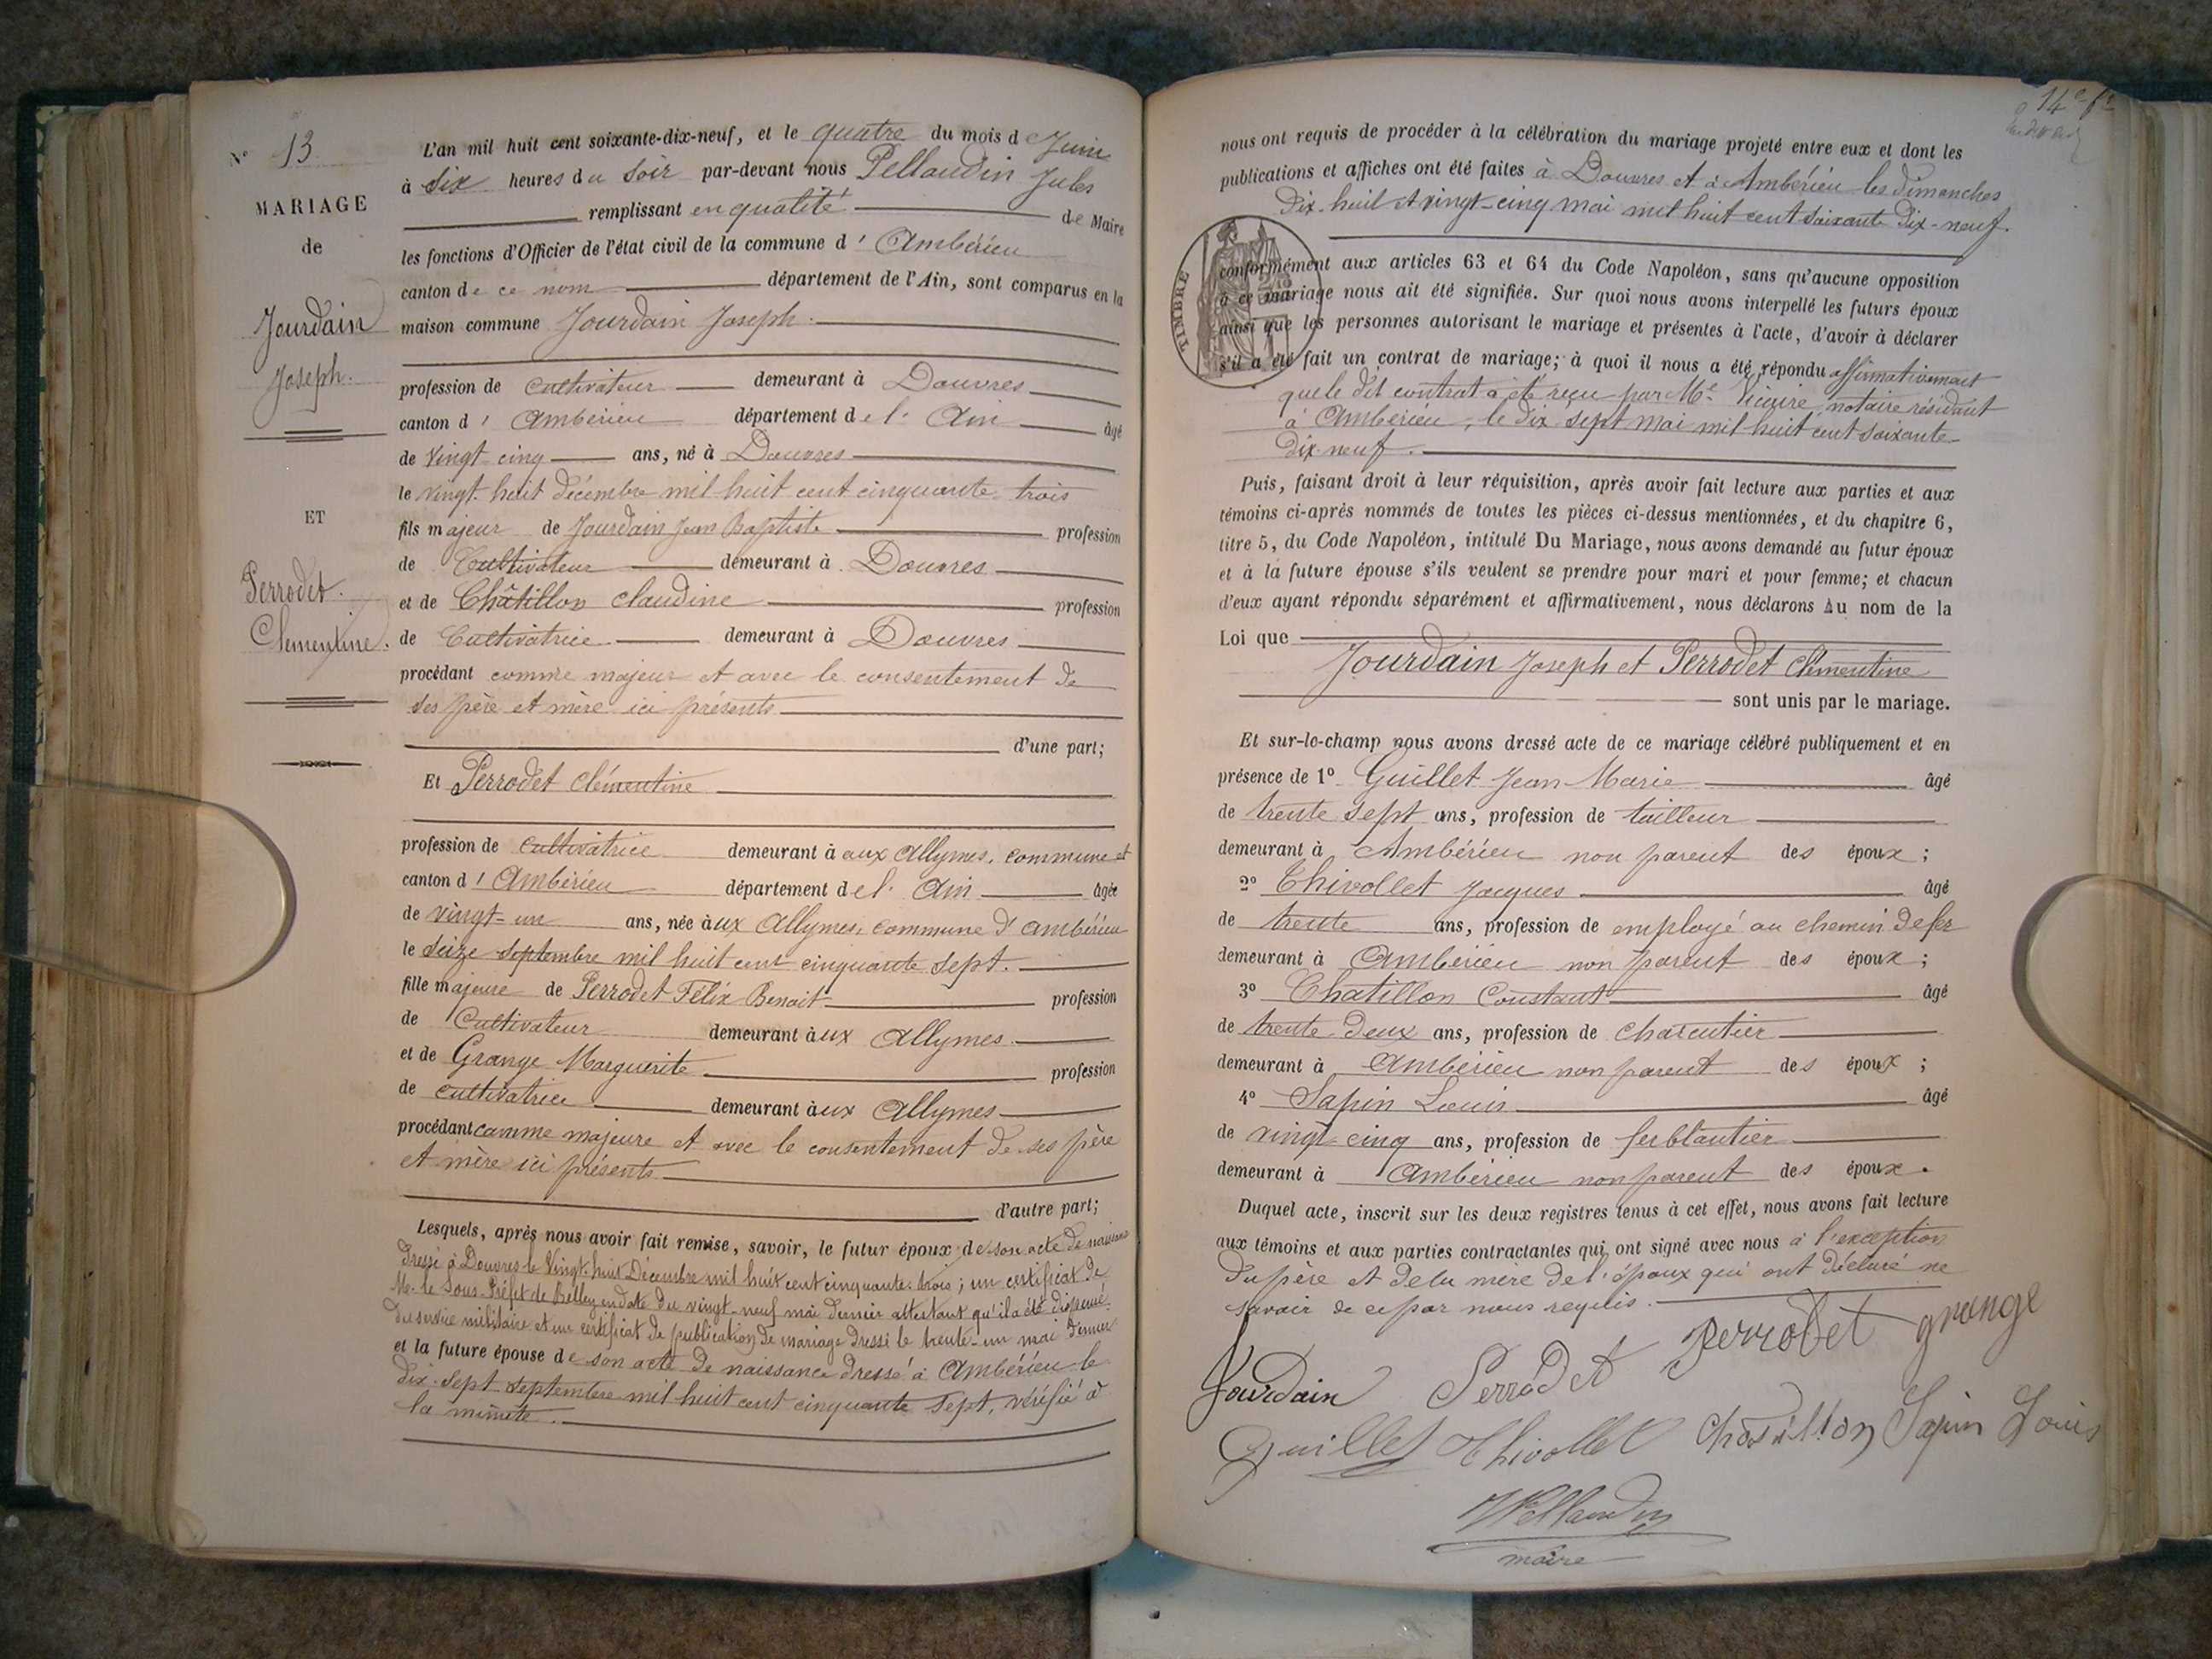 N° 13
MARIAGE
de
Jourdain
Joseph.
ET
Perrodet.
Clémentine.
L'an mil huit cent soixante-dix-neuf, et le quatre du mois de Juin
à six heures du soir par-devant nous Pellaudin Jules
remplissant en qualité de Maire
les fonctions d'Officier de l'état civil de la commune d' Ambérieu
canton de ce nom département de l'Ain, sont comparus en la
maison commune Jourdain Joseph.
profession de cultivateur demeurant à Douvres
canton d' Ambérieu département de l' Ain âgé
de vingt-cinq ans, né à Douvres
le vingt-huit décembre mil huit cent cinquante-trois
fils majeur de Jourdain Jean Baptiste profession
de Cultivateur demeurant à Douvres
et de Châtillon Claudine profession
de Cultivatrice demeurant à Douvres
procédant comme majeur et avec le consentement de
ses père et mère ici présents
d'une part;
Et Perrodet Clémentine
profession de cultivatrice demeurant à aux Allymes, commune et
canton d' Ambérieu département de l' Ain âgée
de vingt-un ans, née aux Allymes, commune d'Ambérieu
le seize septembre mil huit cent cinquante sept.
fille majeure de Perrodet Félix Benoit profession
de Cultivateur demeurant aux Allymes
et de Grange Marguerite profession
de cultivatrice demeurant aux Allymes
procédant comme majeure et avec le consentement de ses père
et mère ici présents
d'autre part;
Lesquels, après nous avoir fait remise, savoir, le futur époux de son acte de naissance
dressé à Douvres le Vingt-huit Décembre mil huit cent cinquante-trois; un certificat de
Mr. le Sous-Préfet de Belley en date du vingt-neuf mai dernier attestant qu'il a été dispensé
du service militaire et un certificat de publication de mariage dressé le trente-un mai dernier
et la future épouse de son acte de naissance dressé à Ambérieu le
dix-sept septembre mil huit cent cinquante sept, vérifié à
la minute.
14e
nous ont requis de procéder à la célébration du mariage projeté entre eux et dont les
publications et affiches ont été faites à Douvres et à Ambérieu les dimanches
dix-huit et vingt-cinq mai mil huit cent soixante dix-neuf.
TIMBRE
conformément aux articles 63 et 64 du Code Napoléon, sans qu'aucune opposition
à ce mariage nous ait été signifiée. Sur quoi nous avons interpellé les futurs époux
ainsi que les personnes autorisant le mariage et présentes à l'acte, d'avoir à déclarer
s'il a été fait un contrat de mariage; à quoi il nous a été répondu affirmativement
que le dit contrat a été reçu par Me notaire résidant
à Ambérieu, le dix sept mai mil huit cent soixante-
dix-neuf.
Puis, faisant droit à leur réquisition, après avoir fait lecture aux parties et aux
témoins ci-après nommés de toutes les pièces ci-dessus mentionnées, et du chapitre 6,
titre 5, du Code Napoléon, intitulé Du Mariage, nous avons demandé au futur époux
et à la future épouse s'ils veulent se prendre pour mari et pour femme; et chacun
d'eux ayant répondu séparément et affirmativement, nous déclarons Au nom de la
Loi que
Jourdain Joseph et Perrodet Clémentine
sont unis par le mariage.
Et sur-le-champ nous avons dressé acte de ce mariage célébré publiquement et en
présence de 1° Guillet Jean-Marie âgé
de trente sept ans, profession de tailleur
demeurant à Ambérieu non parent des époux;
2° Thivollet Jacques âgé
de trente ans, profession de employé au chemin de fer
demeurant à Ambérieu non parent des époux;
3° Chatillon Constant âgé
de trente deux ans, profession de charcutier
demeurant à Ambérieu non parent des époux;
4° Sapin Louis âgé
de vingt-cinq ans, profession de ferblantier
demeurant à Ambérieu non parent des époux.
Duquel acte, inscrit sur les deux registres tenus à cet effet, nous avons fait lecture
aux témoins et aux parties contractantes qui ont signé avec nous à l'exception
du père et de la mère de l'époux qui ont déclaré ne
savoir de ce par nous requis.
Jourdain Perrodet Perrodet grange
Guillet Thivollet Chatillon Sapin Louis
Pellaudin
maire